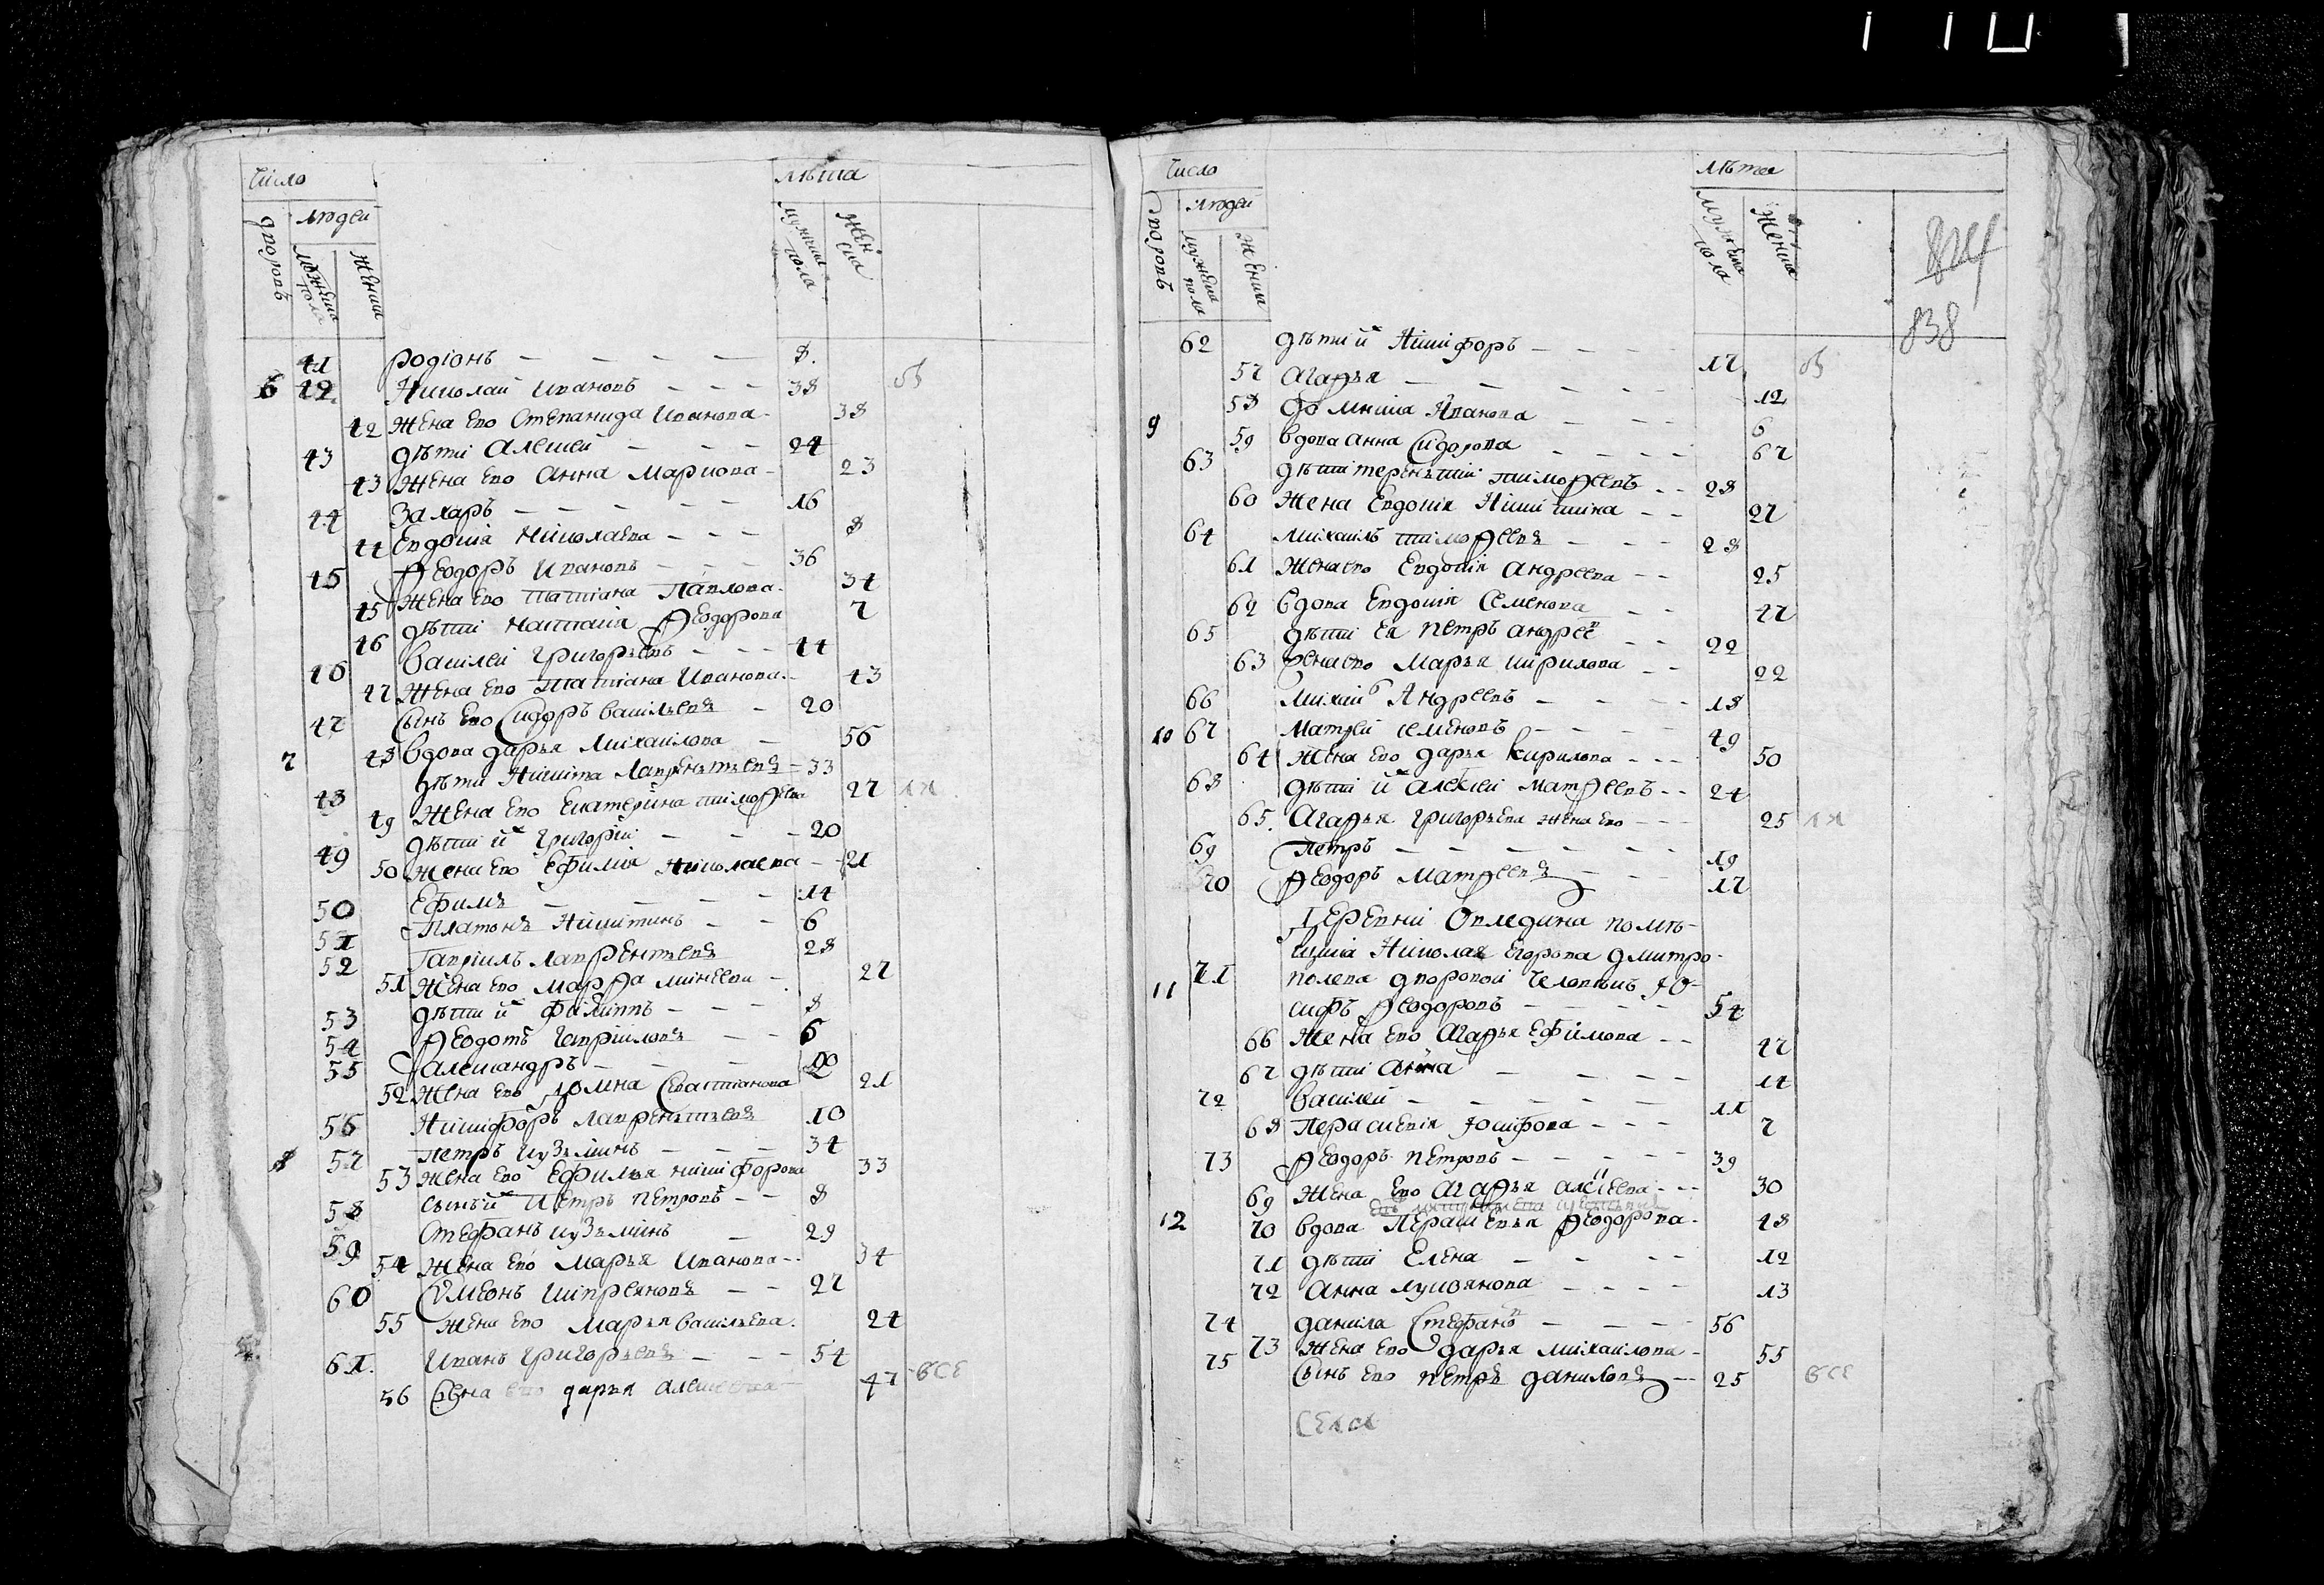 Число
лѣта
дворовъ
людей
мужеска пола
женска
мужеска пола
женска
41 родіонъ 8.
6 42 Николай Ивановъ 38
42 жена его Степанида Иванова 38
43 дѣти Алексей 24
43 жена его Анна Маркова 23
44 Захаръ 16
44 Евдокіа Николаева 8
45 Ѳеодоръ Ивановъ 36
45 жена его татіана Павлова 34
46 дѣти Наталіа Ѳеодорова 7
46 Василей Григорьевъ 44
47 жена его Татіана Иванова 43
47 Сынъ его Сидоръ Васильевъ 20
7 48 вдова дарья Михаилова 56
48 дѣти Никита Лаврентьевъ 33
49 жена его Екатерина тимоѳеева 27
49 дѣти ихъ Григорій 20
50 жена его Ефимія Николаева 21
50 Ефимъ 14
51 Платонъ Никитинъ 6
52 Гавріилъ Лаврентьевъ 28
51 жена его Марѳа минеева 27
53 дѣти ихъ Филиппъ 8
54 Ѳеодотъ Гавріиловъ 6
55 Александръ
52 жена его домна Севастіанова 21
56 Никифоръ Лаврентьевъ 10
8 57 петръ кузьминъ 34
53 жена его Ефимья никифорова 33
58 сынъ ихъ Петръ петровъ 8
59 Стефанъ кузьминъ 29
54 жена его Марья Иванова 34
60 Сѵмеонъ кипреяновъ 27
55 жена его Марья васильева 24
61. Иванъ Григорьевъ 54
56 жена его дарья алексеева 47
Число
лѣта
дворовъ
людей
мужеска пола
женска
мужеска пола
женска
824
838
62 дѣти ихъ Никифоръ 17
57 Агаѳья 12
58 Фомнина Иванова 6
9 59 вдова анна Сидорова 67
63 дѣти терентий тимоѳеевъ 28
60 жена Евдокія Никитина 27
64 михаилъ тимоѳеевъ 28
61 жена его Евдокія андреева 25
62 вдова Евдокія Семенова 47
65 дѣти ея петръ андреевъ 22
63 жена его Марья кирилова 22
66 михайло Андреевъ 18
10 67 матѳей семеновъ 49
64 жена его дарья кирилова 50
68 дѣти ихъ алексей матѳеевъ 24
65. Агаѳья григорьева жена его 25
69 петръ 19
70 Ѳеодоръ матѳеевъ 17
Деревни Овледина помѣ-
щика Николая Егорова дмитро-
11 71 полева дворовой человѣкъ Іо-
сифъ Ѳеодоровъ 54
66 жена его Агаѳья Ефимова 47
67 дѣти анна 14
72 василей 11
68 Параскевія Іосифова 7
73 Ѳеодоръ петровъ 39
69 жена его Агаѳья алексеева 30
12 70 вдова Парасковья Ѳеодорова 48
71 дѣти Елена 12
72 Анна лукоянова 13
74 данила Стефановъ 56
73 жена его дарья михаилова 55
75 Сынъ его петръ даниловъ 25
Села